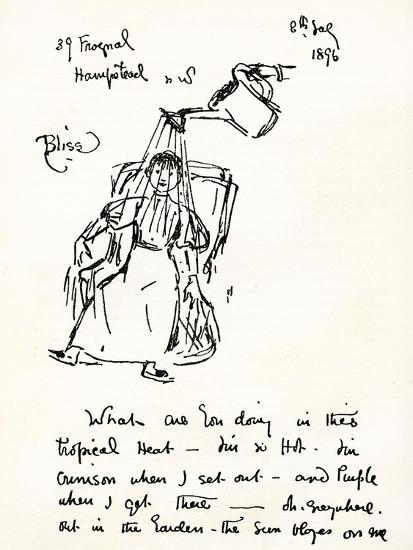 39 Frognal
Hampstead N W
8th July
1896
Bliss
What are you doing in this
tropical Heat — I'm so Hot. I'm
Crimson when I set out — and Purple
when I get There — oh. anywhere.
out in the Garden - the Sun blazes on me